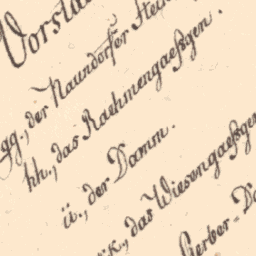 Vorsta
gg., der Naundorfer Ste
hh., das Raehmengaeßgen.
ii., der Damm.
kk., das Wiesengaeßge
Gerber-Da